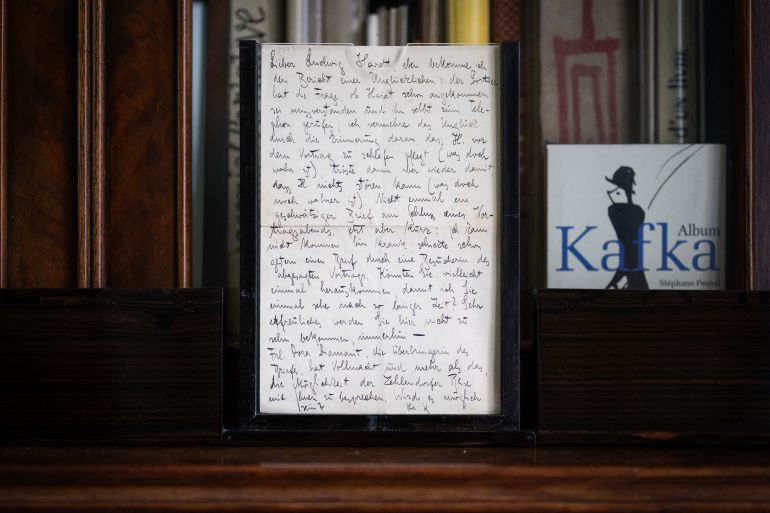 Lieber Ludwig Hardt, eben bekomme ich
den Bericht einer Unglücklichen, der Portier
hat die Frage, ob Hardt schon angekommen
sei missverstanden und ihn selbst zum Tele-
phon gerufen, ich vermehre das Unglück
durch die Erinnerung daran dass H. vor
dem Vortrag zu schlafen pflegt (was doch
wahr ist), tröste dann wieder damit
dass H. nichts stören kann (was doch
noch wahrer ist). Nicht einmal ein
geschwätziger Brief am Schluss eines Vor-
tragsabends, jetzt aber kurz: ich kann
nicht kommen bin krank, schickte schon
gestern einen Brief durch eine Besucherin des
abgesagten Vortrags. Könnten Sie vielleicht
einmal herauskommen damit ich Sie
einmal sehe nach so langer Zeit? Sehr
erfreuliches werden Sie hier nicht zu
sehn bekommen, immerhin —
Frl. Dora Diamant, die Überbringerin des
Briefs, hat Vollmacht und mehr als das,
die Möglichkeit der Zehlendorfer Reise
mit Ihnen zu besprechen. Wird es möglich
sein?
K
Album
Kafka
Stéphane Pesnel